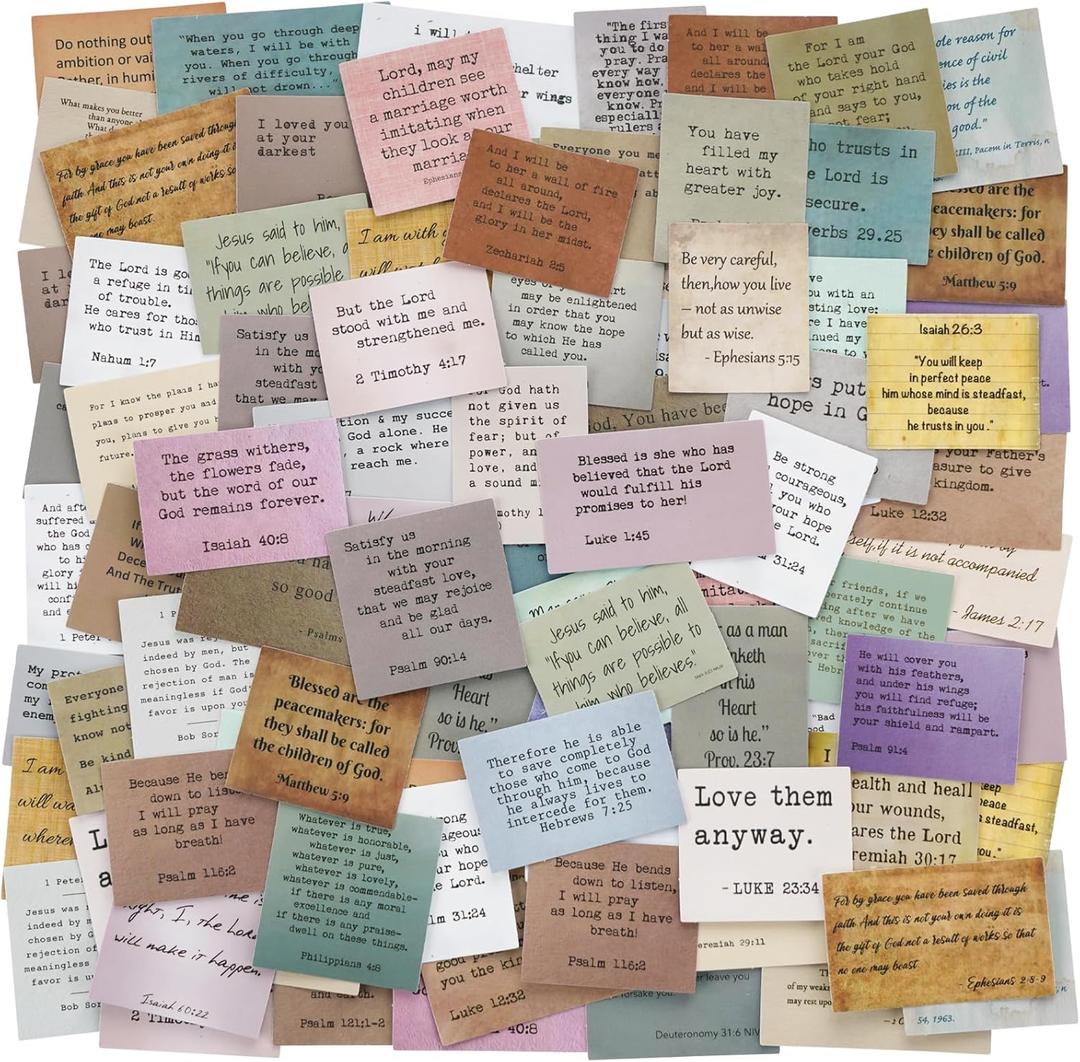 Do nothing out
ambition or vai
"When you go through deep
waters, I will be with
you. When you go through
rivers of difficulty,
will not drown..."
i will
helter
wings
Lord, may my
children see
a marriage worth
imitating when
they look at our
marria
Ephesians
"The first
thing I wa
you to do
pray. Pra
every way
know how,
everyone
know. Pr
especially
rulers a
And I will be
to her a wal
all around,
declares the
and I will be
For I am
the Lord your God
who takes hold
of your right hand
and says to you,
not fear;
ole reason for
ence of civil
ies is the
on of the
good."
XIII, Pacem in Terris, n
What makes you better
than anyone
What d
For by grace you have been saved through
faith And this is not your own doing it
the gift of God not a result of works so
one may boast
I loved you
at your
darkest
And I will be
to her a wall of fire
all around,
declares the Lord,
and I will be the
glory in her midst.
Zechariah 2:5
Everyone you me
You have
filled my
heart with
greater joy.
ho trusts in
he Lord is
secure.
verbs 29.25
sed are the
eacemakers: for
ey shall be called
e children of God.
Matthew 5:9
I lo
at
dar
The Lord is goo
a refuge in ti
of trouble.
He cares for thos
who trust in Him
Nahum 1:7
Jesus said to him,
"If you can believe, a
things are possible
who be
I am with
But the Lord
stood with me and
strengthened me.
2 Timothy 4:17
eyes of your heart
may be enlightened
in order that you
may know the hope
to which He has
called you.
Be very careful,
then,how you live
– not as unwise
but as wise.
- Ephesians 5:15
ve
you with an
Isaiah 26:3
"You will keep
in perfect peace
him whose mind is steadfast,
because
he trusts in you ."
Satisfy us
in the mo
with yo
steadfast
that we may
For I know the plans I ha
plans to prosper you and
you, plans to give you
future.
tion & my succe
God alone. He
, a rock where
reach me.
God hath
not given us
the spirit of
fear; but of
power, an
love, and
a sound m
mothy 1
God. You have bee
s put
hope in G
The grass withers,
the flowers fade,
but the word of our
God remains forever.
Isaiah 40:8
Blessed is she who has
believed that the Lord
would fulfill his
promises to her!
Luke 1:45
Be strong
courageous,
you who
your hope
he Lord.
m 31:24
your Father's
asure to give
kingdom.
Luke 12:32
And afte
suffered a
the God
who has c
to his
glory i
will hi
conf
and e
1 Peter
And The Trut
so good
-Psalms
Satisfy us
in the morning
with your
steadfast love,
that we may rejoice
and be glad
all our days.
Psalm 90:14
Jesus said to him,
"If you can believe, all
things are possible to
him who believes."
self,if it is not accompanied
- James 2:17
friends, if we
berately continue
ing after we have
ved knowledge of the
Hebr
as a man
inketh
n his
Heart
so is he."
Prov. 23:7
He will cover you
with his feathers,
and under his wings
you will find refuge;
his faithfulness will be
your shield and rampart.
Psalm 91:4
1 P
Jesus was rej
indeed by men, but
chosen by God. The
rejection of man is
meaningless if God'
favor is upon you
Bob Sor
My prot
com
my
enem
Everyone
fighting
know not
Be kind
Blessed are the
peacemakers: for
they shall be called
the children of God.
Matthew 5:9
Heart
so is he."
Prov.
Therefore he is able
to save completely
those who come to God
through him, because
he always lives to
intercede for them.
Hebrews 7:25
"Bad
I am
will
where
Because He ben
down to liste
I will pray
as long as I have
breath!
Psalm 116:2
Whatever is true,
whatever is honorable,
whatever is just,
whatever is pure,
whatever is lovely,
whatever is commendable-
if there is any moral
excellence and
if there is any praise-
dwell on these things.
Philippians 4:8
rong
ageous,
who
hope
e Lord.
lm 31:24
Because He bends
down to listen,
I will pray
as long as I have
breath!
Psalm 116:2
Love them
anyway.
- LUKE 23:34
ealth and heal
our wounds,
ares the Lord
remiah 30:17
eep
peace
steadfast,
you."
For by grace you have been saved through
faith And this is not your own doing it is
the gift of God not a result of works so that
no one may boast
- Ephesians 2-8-9
1 Peter
Jesus was
indeed by m
chosen by G
rejection of
meaningless
favor is u
Bob Sor
ight, I, the Lord
will make it happen.
Isaiah 60:22
2 Timoth
and earth.
Psalm 121:1-2
you the kin
Luke 12:32
40:8
eremiah 29:11
er leave you
forsake you.
Deuteronomy 31:6 NIV
of my weakn
may rest upon
54, 1963.